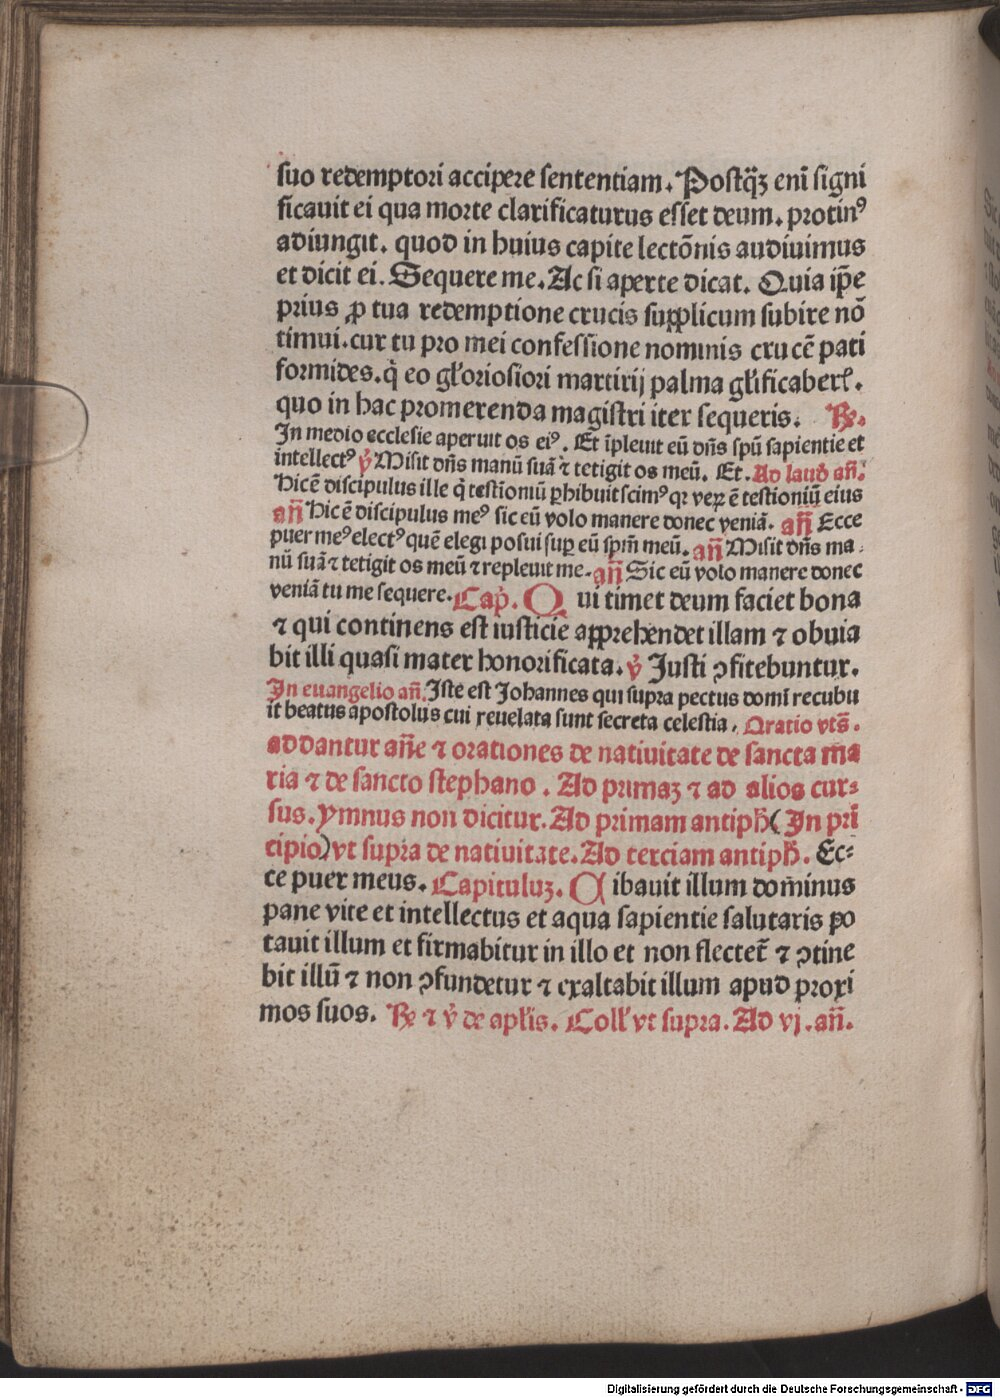 suo redemptori accipere sententiam. Postq̄ꝫ eni̅ signi
ficauit ei qua morte clarificaturus esset deum. protinꝰ
adiungit. quod in huius capite lectōnis audiuimus
et dicit ei. Sequere me. Ac si aperte dicat. Quia ip̅e
prius ꝓ tua redemptione crucis supplicum subire nō
timui. cur tu pro mei confessione nominis crucē pati
formides. q̇ eo gl'oriosiori martirij palma gl'ificaberl'.
quo in hac promerenda magistri iter sequeris. ℟.
In medio ecclesie aperuit os eiꝰ. Et īpleuit eū dn̄s spū sapientie et
intellectꝰ ℣ Misit dn̄s manū suā ⁊ tetigit os meū. Et. Ad laud̛ an̄.
Hic ē discipulus ille q̇ testioniū ꝑhibuit scimꝰ qꝛ veꝝ ē testioniū eius
an̄ Hic ē discipulus meꝰ sic eū volo manere donec veniā. an̄ Ecce
puer meꝰ electꝰ quē elegi posui suꝑ eū spm̄ meū. an̄ Misit dn̄s ma
nū suā ⁊ tetigit os meū ⁊ repleuit me. an̄ Sic eū volo manere donec
veniā tu me sequere. Cap̛. Q ui timet deum faciet bona
⁊ qui continens est iusticie apprehendet illam ⁊ obuia
bit illi quasi mater honorificata. ℣ Justi ↄfitebuntur.
In euangelio an̄. Iste est Johannes qui supra pectus domi̅ recubu
it beatus apostolus cui reuelata sunt secreta celestia. Oratio vts̄.
addantur an̄e ⁊ orationes de natiuitate de sancta ma
ria ⁊ de sancto stephano. Ad primaꝫ ⁊ ad alios cur⸗
sus. ymnus non dicitur. Ad primam antiph̄ (In pri̅
cipio) vt supra de natiuitate. Ad terciam antiph̄. Ec⸗
ce puer meus. Capituluꝫ. C ibauit illum dom̄inus
pane vite et intellectus et aqua sapientie salutaris po
tauit illum et firmabitur in illo et non flectet̄ ⁊ ↄtine
bit illū ⁊ non ↄfundetur ⁊ exaltabit illum apud proxi
mos suos. ℟ ⁊ ℣ de apl'is. Coll' vt supra. Ad vj. an̄.
Digitalisierung gefördert durch die Deutsche Forschungsgemeinschaft - DFG